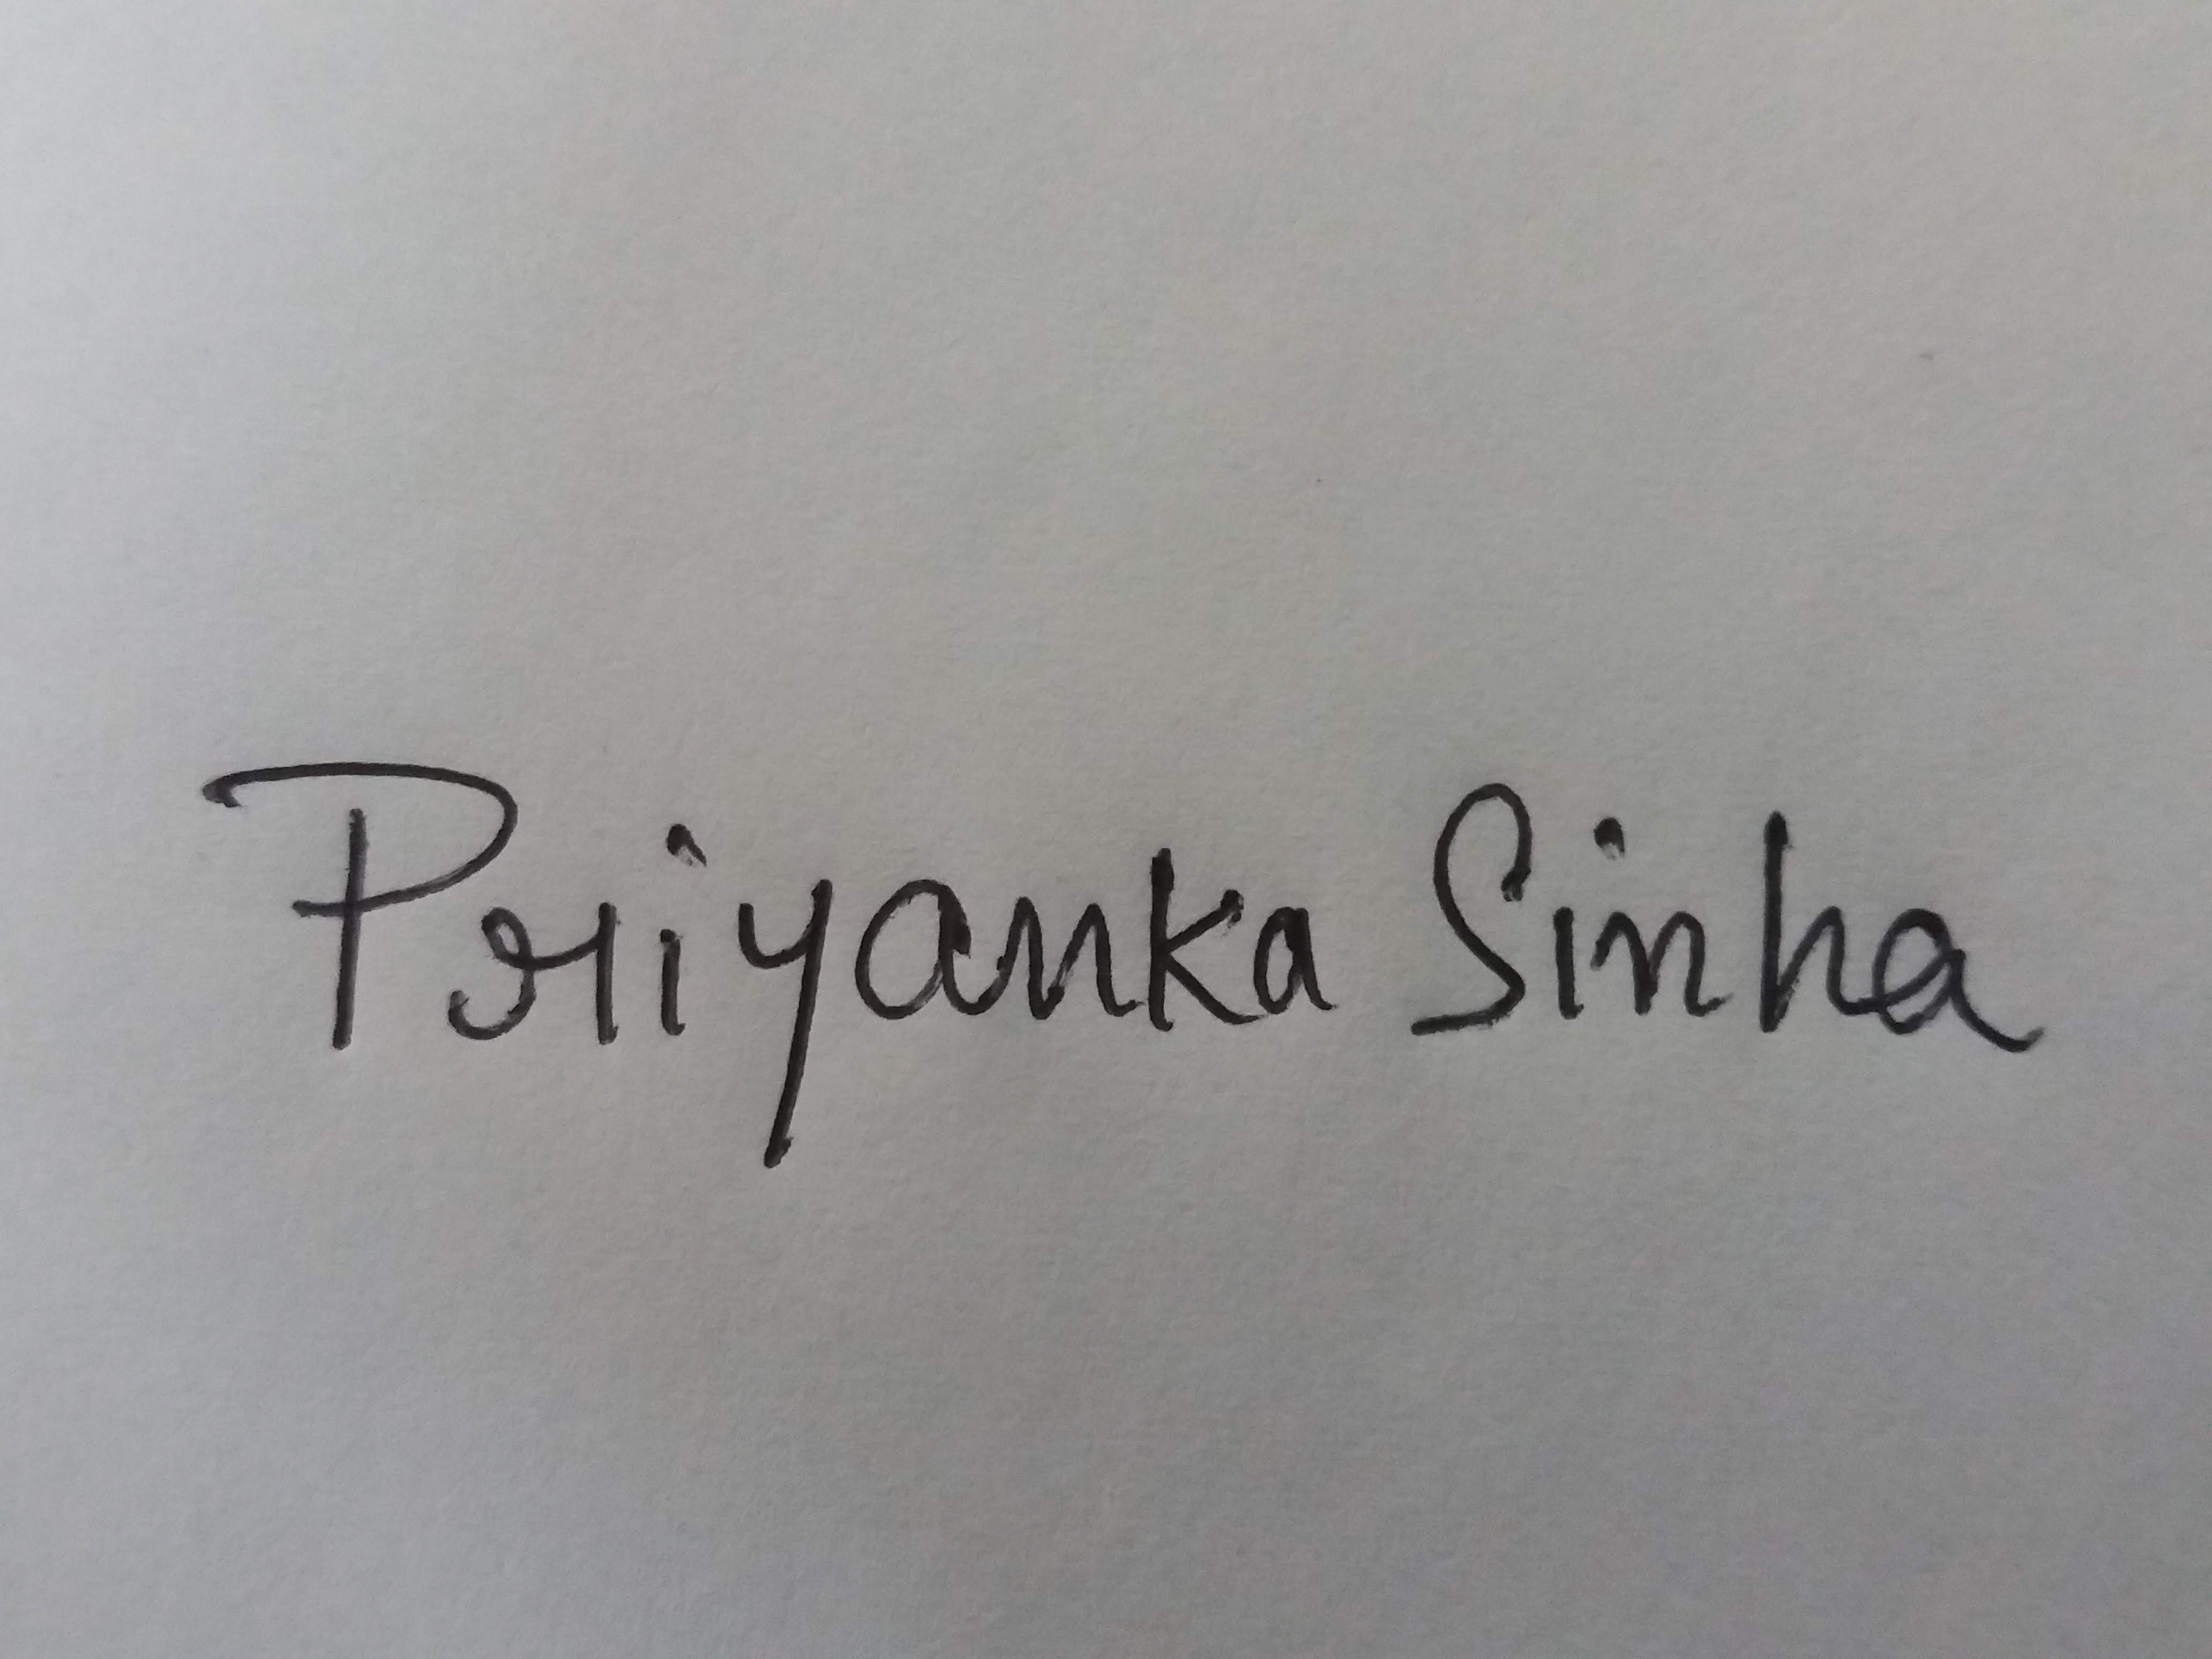 Priyanka Sinha